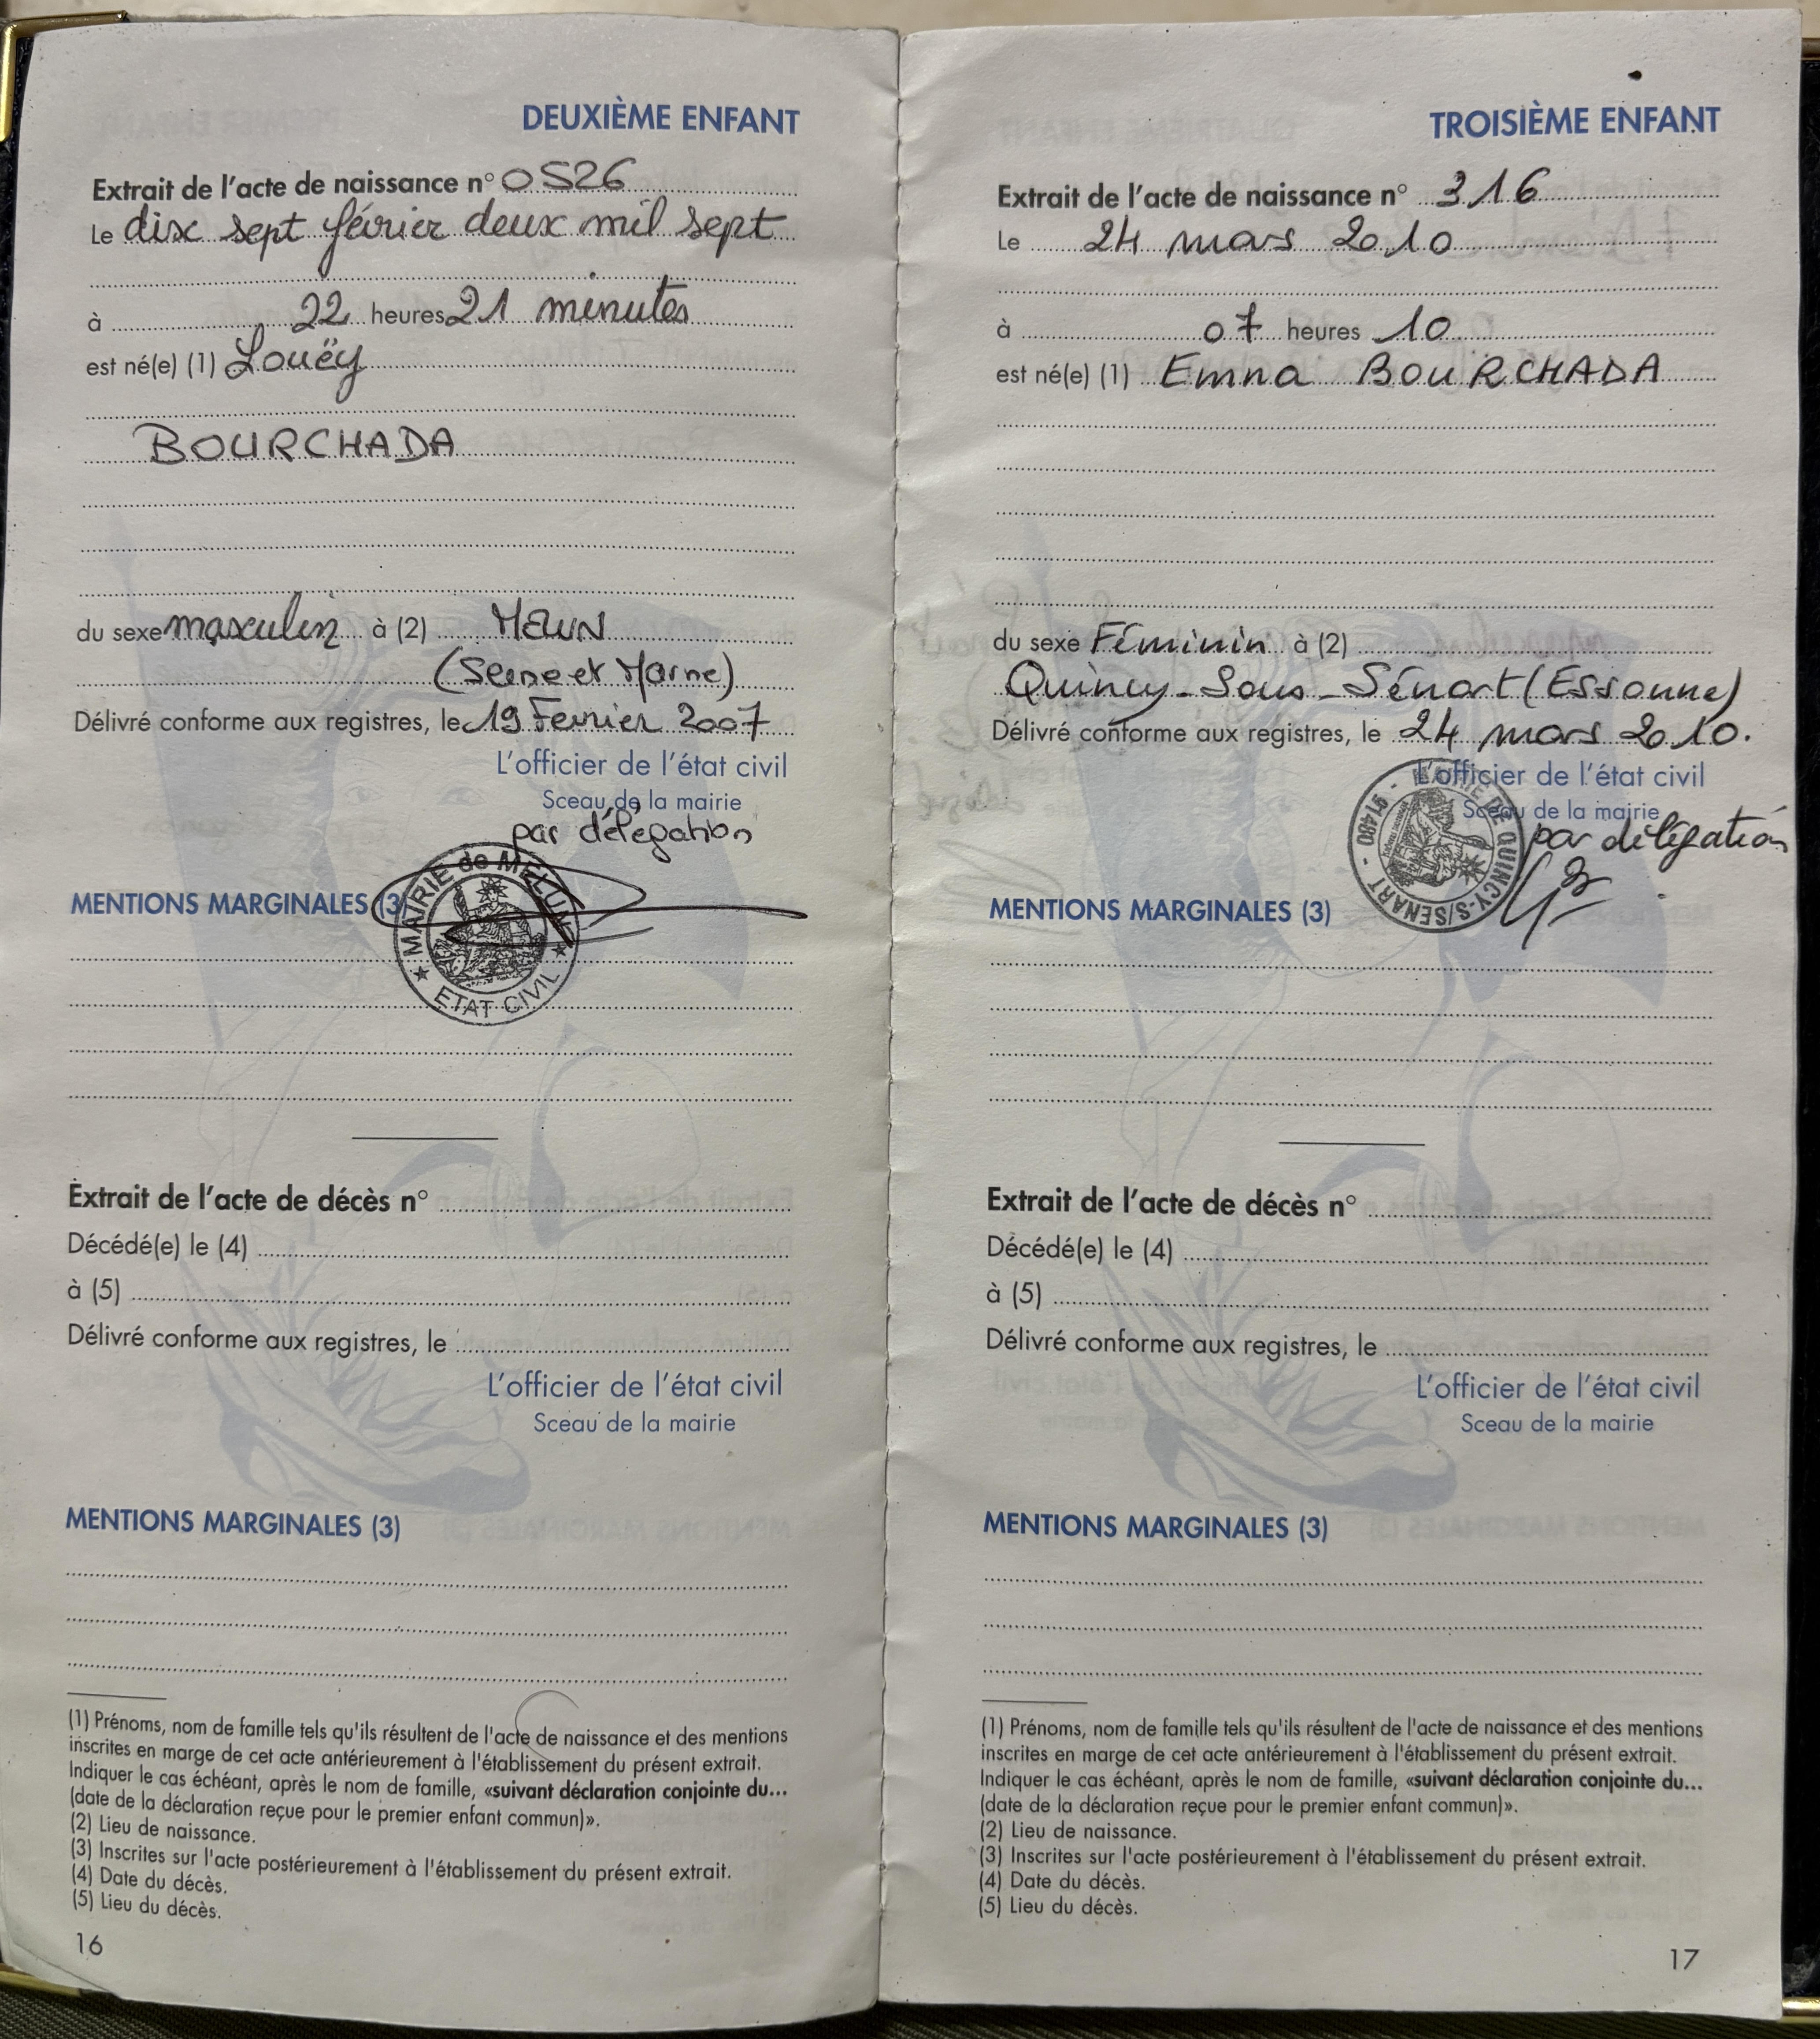 DEUXIÈME ENFANT
Extrait de l'acte de naissance n° 0526
Le dix sept février deux mil sept
à 22 heures 21 minutes
est né(e) (1) Louëy
BOURCHADA
du sexe masculin à (2) MELUN
(Seine et Marne)
Délivré conforme aux registres, le 19 Fevrier 2007
L'officier de l'état civil
Sceau de la mairie
par délégation
MENTIONS MARGINALES (3)
MAIRIE de MELUN
★ ETAT CIVIL ★
Extrait de l'acte de décès n°
Décédé(e) le (4)
à (5)
Délivré conforme aux registres, le
L'officier de l'état civil
Sceau de la mairie
MENTIONS MARGINALES (3)
(1) Prénoms, nom de famille tels qu'ils résultent de l'acte de naissance et des mentions
inscrites en marge de cet acte antérieurement à l'établissement du présent extrait.
Indiquer le cas échéant, après le nom de famille, «suivant déclaration conjointe du...
(date de la déclaration reçue pour le premier enfant commun)».
(2) Lieu de naissance.
(3) Inscrites sur l'acte postérieurement à l'établissement du présent extrait.
(4) Date du décès.
(5) Lieu du décès.
16
TROISIÈME ENFANT
Extrait de l'acte de naissance n° 316
Le 24 mars 2010
à 07 heures 10
est né(e) (1) Emna BOURCHADA
du sexe Féminin à (2)
Quincy-Sous-Sénart (Essonne)
Délivré conforme aux registres, le 24 mars 2010.
L'officier de l'état civil
Sceau de la mairie
par délégation
MAIRIE DE QUINCY-S/SENART - 91480 -
MENTIONS MARGINALES (3)
Extrait de l'acte de décès n°
Décédé(e) le (4)
à (5)
Délivré conforme aux registres, le
L'officier de l'état civil
Sceau de la mairie
MENTIONS MARGINALES (3)
(1) Prénoms, nom de famille tels qu'ils résultent de l'acte de naissance et des mentions
inscrites en marge de cet acte antérieurement à l'établissement du présent extrait.
Indiquer le cas échéant, après le nom de famille, «suivant déclaration conjointe du...
(date de la déclaration reçue pour le premier enfant commun)».
(2) Lieu de naissance.
(3) Inscrites sur l'acte postérieurement à l'établissement du présent extrait.
(4) Date du décès.
(5) Lieu du décès.
17